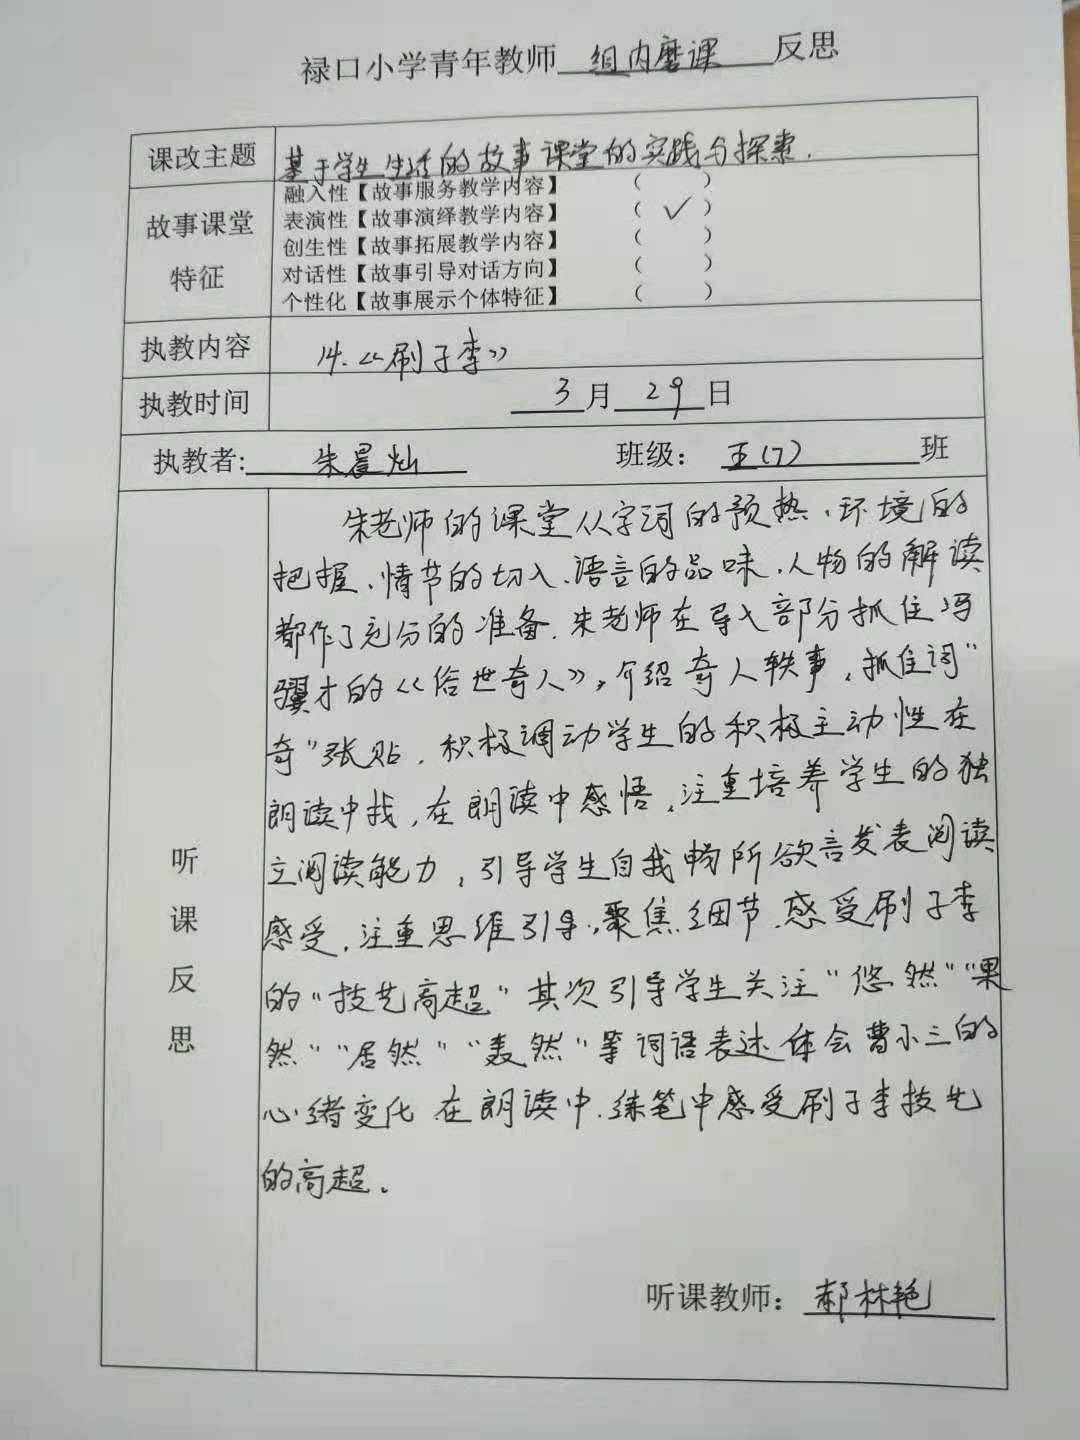 禄口小学青年教师 组内磨课 反思
课改主题 基于学生生活的故事课堂的实践与探索.
故事课堂特征
融入性【故事服务教学内容】 （ ）
表演性【故事演绎教学内容】 （ ✓ ）
创生性【故事拓展教学内容】 （ ）
对话性【故事引导对话方向】 （ ）
个性化【故事展示个体特征】 （ ）
执教内容 14.《刷子李》
执教时间 3月29日
执教者: 朱晨灿 班级： 五(7) 班
听课反思
朱老师的课堂从字词的预热、环境的
把握、情节的切入、语言的品味、人物的解读
都作了充分的准备.朱老师在导入部分抓住冯
骥才的《俗世奇人》,介绍奇人轶事,抓住词"
奇"张贴,积极调动学生的积极主动性在
朗读中找,在朗读中感悟,注重培养学生的独
立阅读能力,引导学生自我畅所欲言发表阅读
感受,注重思维引导,聚焦细节.感受刷子李
的"技艺高超"其次引导学生关注"悠然""果
然""居然""轰然"等词语表述体会曹小三的
心绪变化 在朗读中.练笔中感受刷子李技艺
的高超。
听课教师： 郝林艳